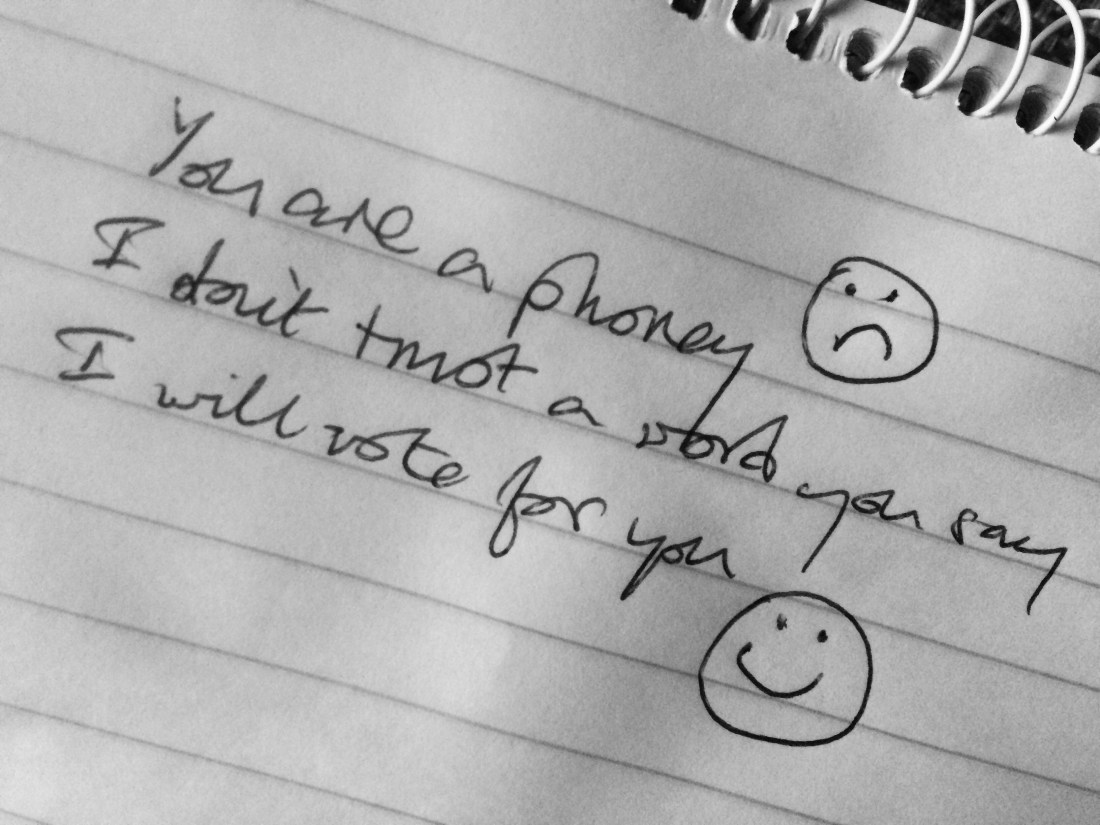 You are a phoney
I don't trust a word you say
I will vote for you